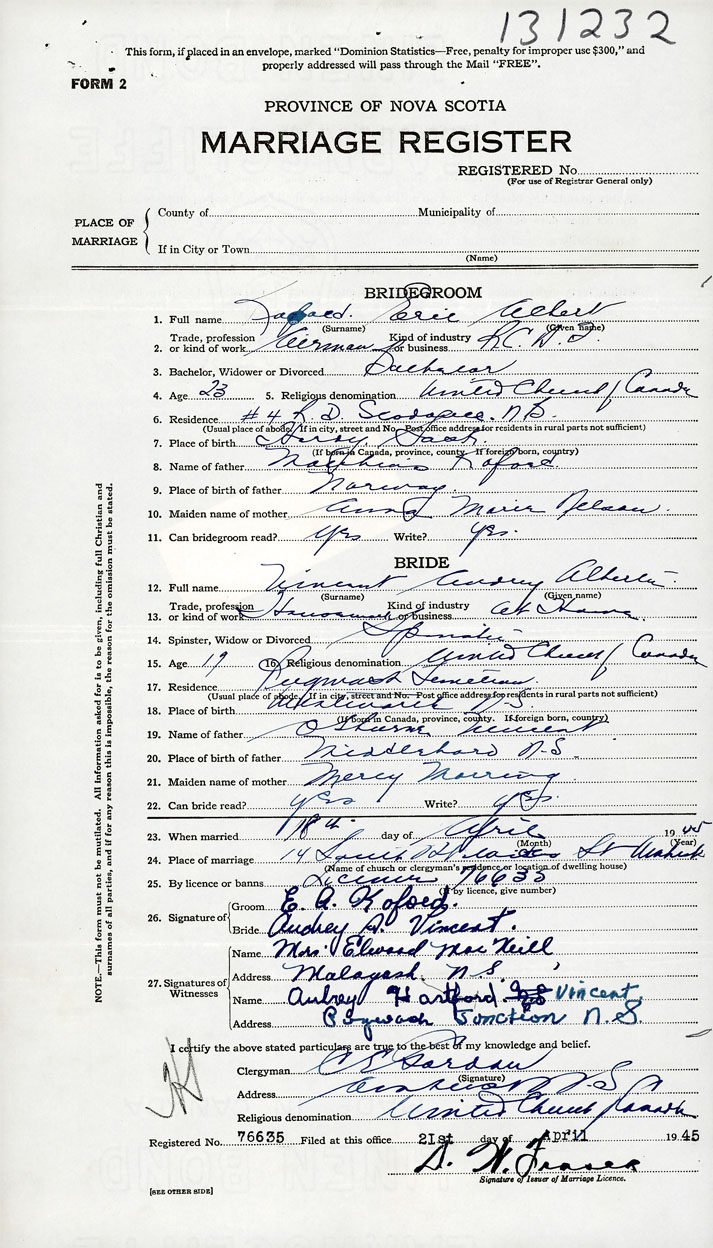 131232
This form, if placed in an envelope, marked "Dominion Statistics—Free, penalty for improper use $300," and
properly addressed will pass through the Mail "FREE".
FORM 2
PROVINCE OF NOVA SCOTIA
MARRIAGE REGISTER
REGISTERED No.
(For use of Registrar General only)
PLACE OF MARRIAGE
County of Municipality of
If in City or Town
(Name)
BRIDEGROOM
1. Full name Koford. Eric Albert
(Surname) (Given name)
2. Trade, profession or kind of work Airman Kind of industry or business R.C.A.F.
3. Bachelor, Widower or Divorced Bachelor
4. Age 23 5. Religious denomination United Church of Canada
6. Residence #4 R.D. Scoudouc. N.B.
(Usual place of abode. If in city, street and No. Post office address for residents in rural parts not sufficient)
7. Place of birth Sask.
(If born in Canada, province, county. If foreign born, country)
8. Name of father Matthias Koford.
9. Place of birth of father Norway
10. Maiden name of mother Anna Marie Nelson.
11. Can bridegroom read? yes Write? yes.
BRIDE
12. Full name Vincent Audrey Alberta.
(Surname) (Given name)
13. Trade, profession or kind of work Housework Kind of industry or business At Home
14. Spinster, Widow or Divorced Spinster
15. Age 19 16. Religious denomination United Church of Canada
17. Residence Pugwash Junction.
(Usual place of abode. If in city, street and No. Post office address for residents in rural parts not sufficient)
18. Place of birth N.S.
(If born in Canada, province, county. If foreign born, country)
19. Name of father Vincent
20. Place of birth of father N.S.
21. Maiden name of mother Mercy
22. Can bride read? yes Write? yes.
23. When married 18th. day of April 1945
(Month) (Year)
24. Place of marriage 14 South St Amherst
(Name of church or clergyman's residence or location of dwelling house)
25. By licence or banns License 76635
(If by licence, give number)
26. Signature of Groom E. A. Koford.
Bride Audrey A. Vincent.
27. Signatures of Witnesses
Name Mrs. Elwood MacNeill
Address Malagash. N S
Name Aubrey Hartford Vincent
Address Pugwash Junction N.S
I certify the above stated particulars are true to the best of my knowledge and belief.
Clergyman C E Gordon
(Signature)
Address Amherst N.S
Religious denomination United Church of Canada
Registered No. 76635 Filed at this office 21st day of April 1945
D. W. Fraser
Signature of Issuer of Marriage Licence.
[SEE OTHER SIDE]
NOTE.—This form must not be mutilated. All information asked for is to be given, including full Christian and
surnames of all parties, and if for any reason this is impossible, the reason for the omission must be stated.